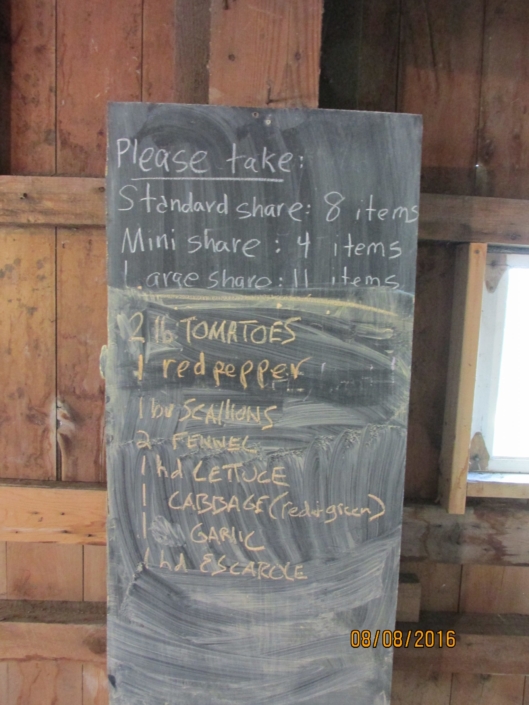 Please take:
Standard share: 8 items
Mini share: 4 items
Large share: 11 items
2 lb TOMATOES
1 red pepper
1 bu SCALLIONS
2 FENNEL
1 hd LETUCE
1 CABBAGE (red or green)
1 GARLIC
1 hd ESCAROLE
08/08/2016